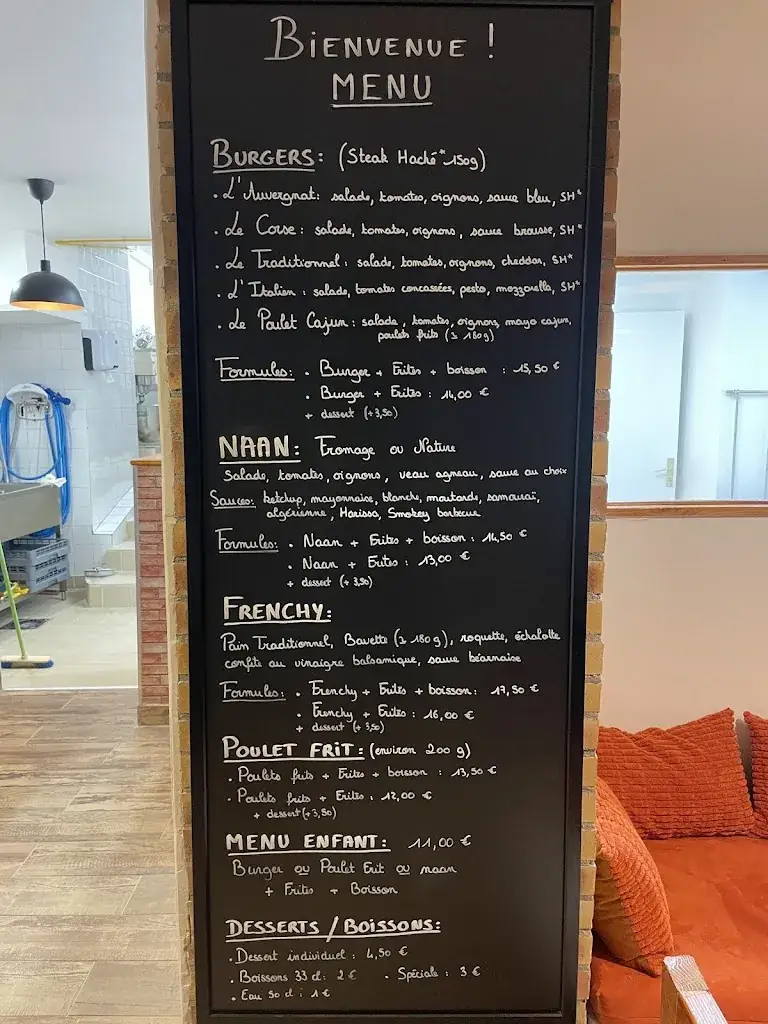 BIENVENUE !
MENU
BURGERS: (Steak Haché* 150g)
. L'Auvergnat: salade, tomates, oignons, sauce bleu, SH*
. Le Corse : salade, tomates, oignons, sauce brousse, SH*
. Le Traditionnel : salade, tomates, oignons, cheddar, SH*
. L'Italien : salade, tomates concassées, pesto, mozzarella, SH*
. Le Poulet Cajun : salade, tomates, oignons, mayo cajun,
poulets frits (± 180g)
Formules: . Burger + Frites + boisson : 15,50 €
. Burger + Frites : 14,00 €
+ dessert (+3,50)
NAAN: Fromage ou Nature
Salade, tomates, oignons, veau agneau, sauce au choix
Sauces: ketchup, mayonnaise, blanche, moutarde, samouraï,
algérienne, Harissa, Smokey barbecue
Formules: . Naan + Frites + boisson : 14,50 €
. Naan + Frites : 13,00 €
+ dessert (+3,50)
FRENCHY:
Pain Traditionnel, Bavette (± 180g), roquette, échalotte
confite au vinaigre balsamique, sauce béarnaise
Formules: . Frenchy + Frites + boisson : 17,50 €
. Frenchy + Frites : 16,00 €
+ dessert (+3,50)
POULET FRIT : (environ 200 g)
. Poulets frits + Frites + boisson : 13,50 €
. Poulets frits + Frites : 12,00 €
+ dessert (+3,50)
MENU ENFANT: 11,00 €
Burger ou Poulet Frit ou naan
+ Frites + Boisson
DESSERTS / BOISSONS:
. Dessert individuel : 4,50 €
. Boissons 33 cl : 2 € . Spéciale : 3 €
. Eau 50 cl : 1 €